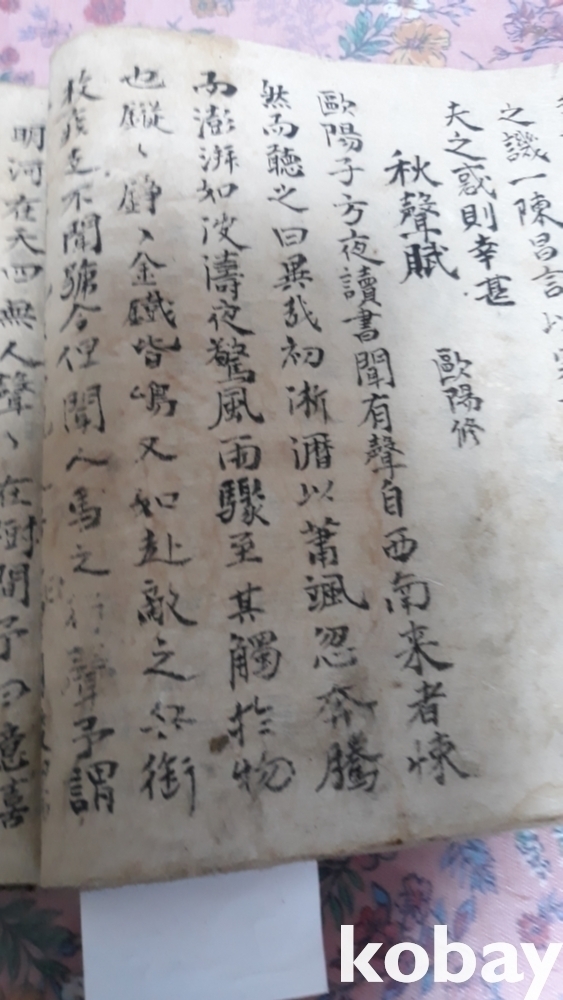 之譏一陳昌言以
夫之惑則幸甚
秋聲賦 歐陽修
歐陽子方夜讀書聞有聲自西南来者悚
然而聽之曰異哉初淅瀝以蕭颯忽奔騰
而澎湃如波濤夜驚風雨驟至其觸於物
也鏦〻錚〻金鐵皆鳴又如赴敵之兵銜
枚疾走不聞號令但聞人馬之行聲予謂
明河在天四無人聲〻在樹間予曰噫嘻
kobay